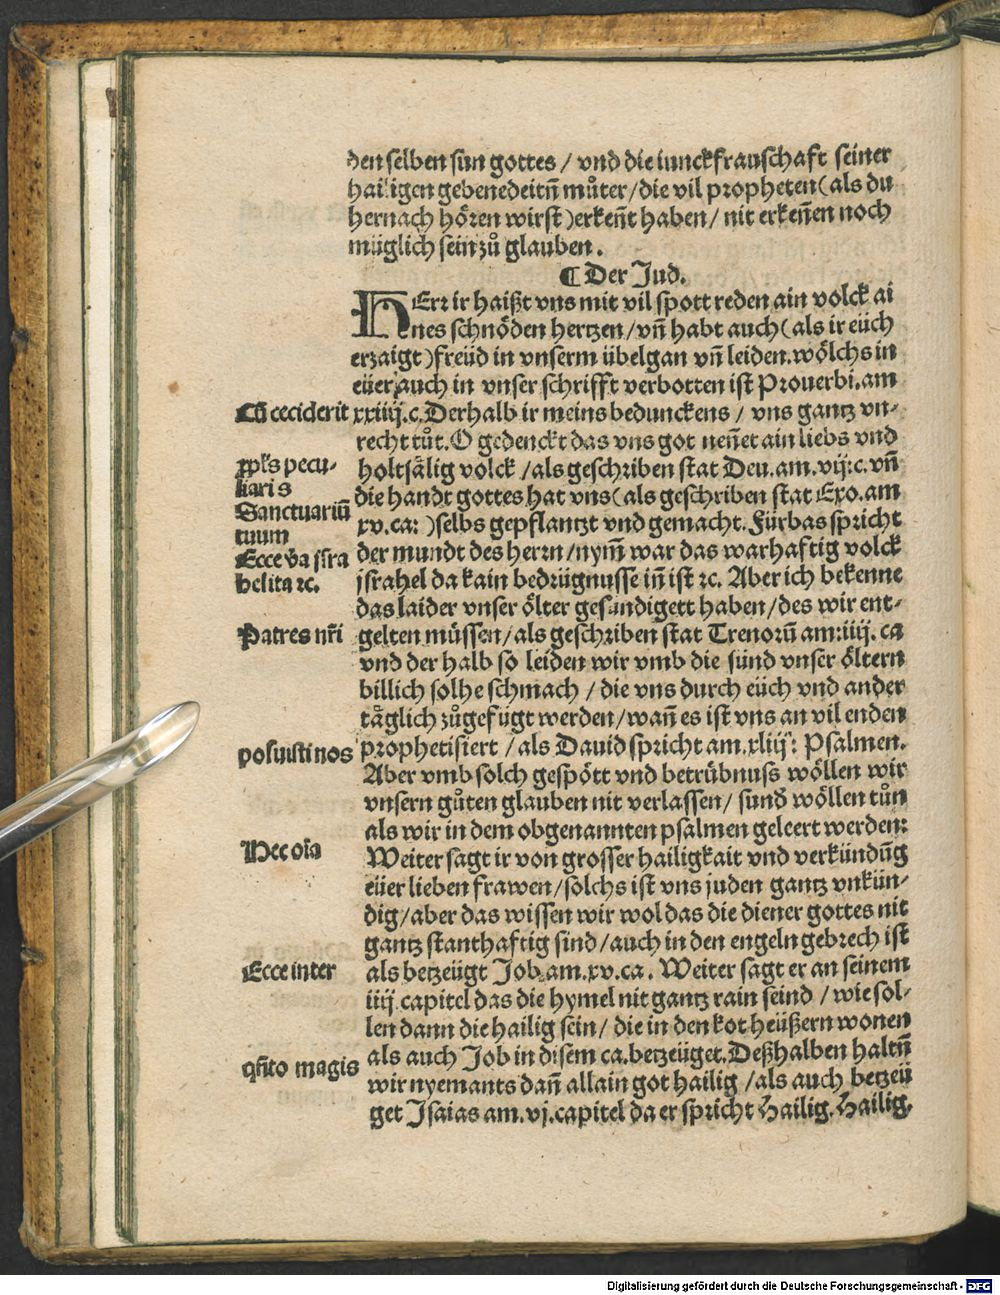 den selben sun gottes / vnd die iunckfrauschaft seiner
hailigen gebenedeitñ můter / die vil propheten (als du
hernach hören wirst) erkeñt haben / nit erkeñen noch
müglich sein zů glauben.
¶ Der Jud.
HErr ir haißt vns mit vil spott reden ain volck ai
nes schnöden hertzen / vñ habt auch (als ir eüch
erzaigt) freüd in vnserm übelgan vñ leiden. wölchs in
eüer auch in vnser schrifft verbotten ist Prouerbi. am
Cũ ceciderit
xxiiij. c. Derhalb ir meins bedunckens / vns gantz vn-
recht tůt. O gedenckt das vns got neñet ain liebs vnd
ppl's pecu-
liaris
holtsälig volck / als geschriben stat Deu. am. vij: c. vñ
die handt gottes hat vns (als geschriben stat Exo. am
Sanctuariũ
tuum
xv. ca: ) selbs gepflantzt vnd gemacht. Fürbas spricht
Ecce v̄a isra
helita ꝛc.
der mundt des herrn / nym̃ war das warhaftig volck
jsrahel da kain bedrügnusse iñ ist ꝛc. Aber ich bekenne
das laider vnser ölter gesundigett haben / des wir ent-
Patres nr̃i
gelten müssen / als geschriben stat Trenorũ am: iiij. ca
vnd der halb so leiden wir vmb die sünd vnser öltern
billich solhe schmach / die vns durch eüch vnd ander
täglich zůgefügt werden / wañ es ist vns an vil enden
posuisti nos
prophetisiert / als Dauid spricht am. xliij: Psalmen.
Aber vmb solch gespött vnd betrübnuss wöllen wir
vnsern gůten glauben nit verlassen / sund̃ wöllen tůn
als wir in dem obgenannten psalmen geleert werden:
Hec oĩa
Weiter sagt ir von grosser hailigkait vnd verkündũg
eüer lieben frawen / solchs ist vns juden gantz vnkün-
dig / aber das wissen wir wol das die diener gottes nit
gantz stanthaftig sind / auch in den engeln gebrech ist
Ecce inter
als betzeügt Job. am. xv. ca. Weiter sagt er an seinem
iiij. capitel das die hymel nit gantz rain seind / wie sol-
len dann die hailig sein / die in den kot heüßern wonen
qñto magis
als auch Job in disem ca. betzeüget. Deßhalben haltñ
wir nyemants dañ allain got hailig / als auch betzeü
get Jsaias am. vj. capitel da er spricht Hailig. Hailig.
Digitalisierung gefördert durch die Deutsche Forschungsgemeinschaft - DFG